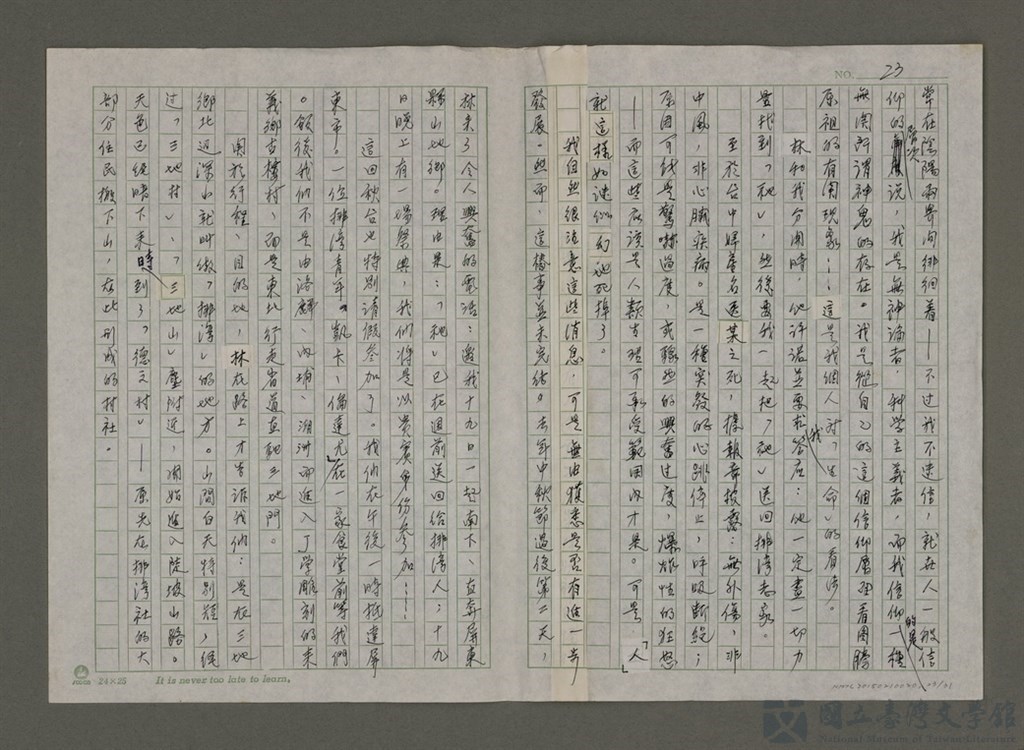 NO. 23
常在陰陽兩界間徘徊着——不過我不迷信,就在人一般信
仰的層次說,我是無神論者,科學主義者,而我信仰的是一種
無關所謂神鬼的存在。我是從自己的這個信仰層面看圖騰
原祖的有關現象……這是我個人對「生命」的看法。
林和我分開時,他許諾並要求我答應:他一定盡一切力
量找到「祂」,然後要我一起把「祂」送回排灣老家。
至於台中婦產名醫某之死,據報章披露:無外傷,非
中風,非心臟疾病。是一種突發的心跳停止,呼吸斷絕;
原因可能是驚嚇過度,或驟然的興奮過度,爆炸性的狂怒
——而這些應該是人類生理可承受範圍內才是。可是「人」
就這樣如謎似幻地死掉了。
我自然很注意這些消息,可是無由獲悉是否有進一步
發展。然而,這樁事並未完結。去年中秋節過後第二天,
林來了令人興奮的電話:邀我十九日一起南下、直奔屏東
縣山地鄉。理由是:「祂」已在週前送回給排灣人;十九
日晚上有一場祭典,我們將是以貴賓身份參加……
這回秋台也特別請假參加了。我們在午後一時抵達屏
東市。一位排灣青年。凱卡、倫達尤在一家食堂前等我們
。飯後我們不是由洛麟、內埔、潮洲而進入丁學雕刻的來
義鄉古樓村,而是東北行走省道直馳三地門。
關於行程、目的地,林在路上才告訴我們:是在三地
鄉北邊深山就叫做「排灣」的地方。山間白天特別短,經
過「三地村」、「三地山」麈附近,開始進入陡坡山路。
天色已經暗下來時到了「德文村」——原先在排灣社的大
部分住民搬下山,在此形成的村社。
24×25
It is never too late to learn.
國立臺灣文學館
National Museum of Taiwan Literature